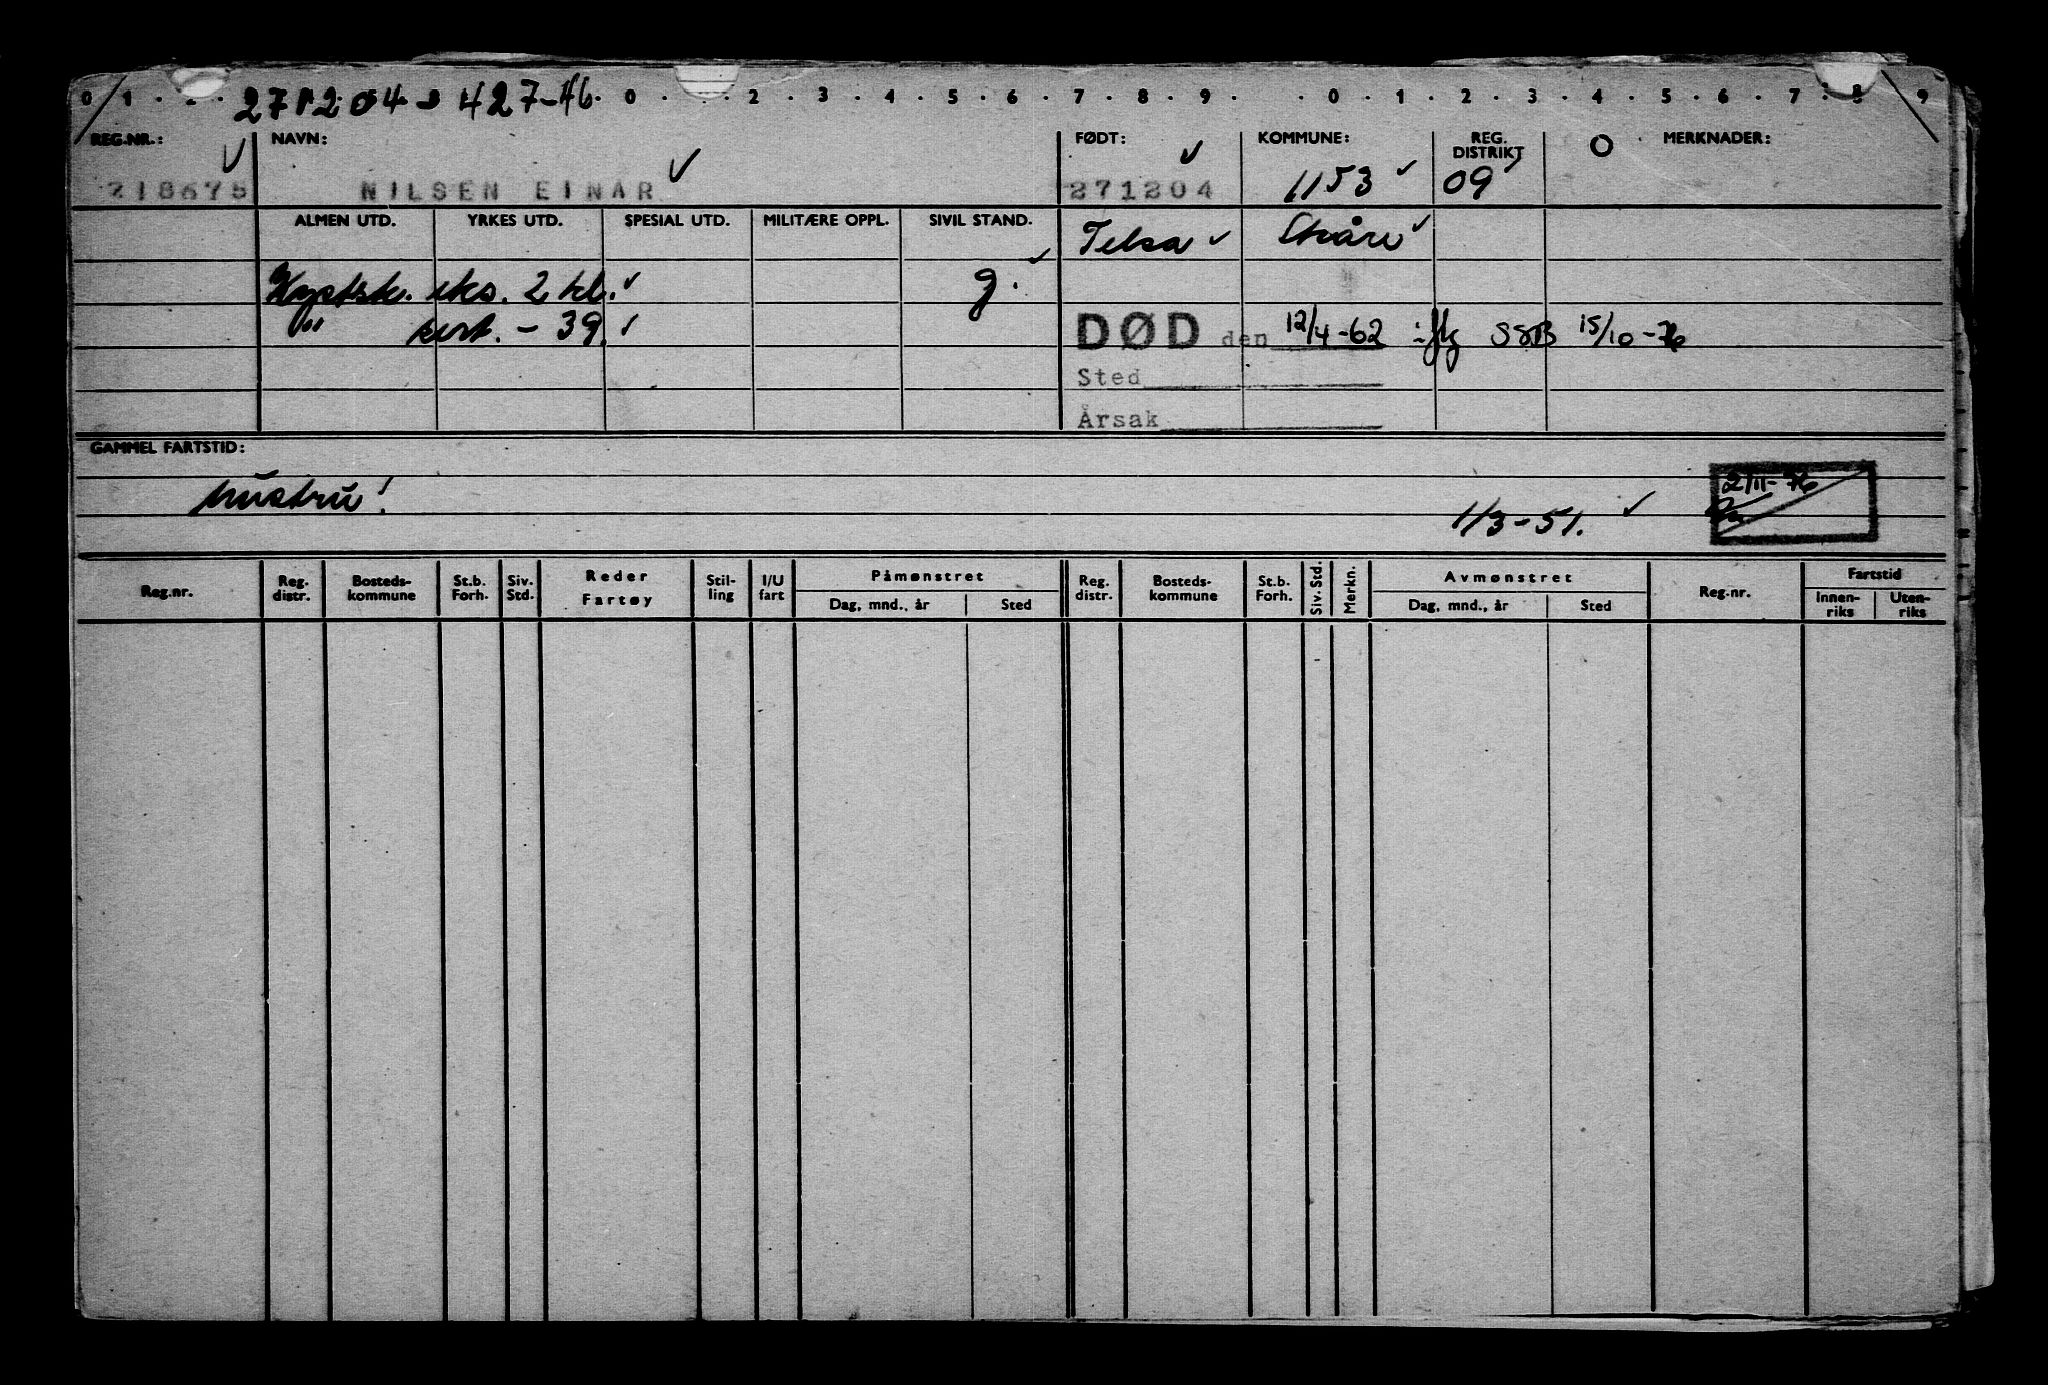 0 1 . . . 271204 427-46. 0 . . . 2 . 3 . 4 . 5 . 6 . 7 . 8 . 9 . . . 0 . 1 . 2 . 3 . 4 . 5 . 6 . 7 . 8 . 9
REG.NR.: NAVN: FØDT: KOMMUNE: REG. DISTRIKT O MERKNADER:
218675 NILSEN EINAR 271204 1153 09
ALMEN UTD. YRKES UTD. SPESIAL UTD. MILITÆRE OPPL. SIVIL STAND. Telsa
Kystsk. eks. 2 kl. g.
" sert. - 39. DØD den 12/4-62 SSB 15/10-76
Sted
Årsak
GAMMEL FARTSTID:
hustru! 2/11-76
1/3-51.
Reg.nr. Reg. distr. Bosteds-kommune St.b. Forh. Siv. Std. Reder Fartøy Stil-ling I/U fart Påmønstret Dag, mnd., år Sted Reg. distr. Bosteds-kommune St.b. Forh. Siv. Std. Merkn. Avmønstret Dag, mnd., år Sted Reg.nr. Fartstid Innen-riks Uten-riks